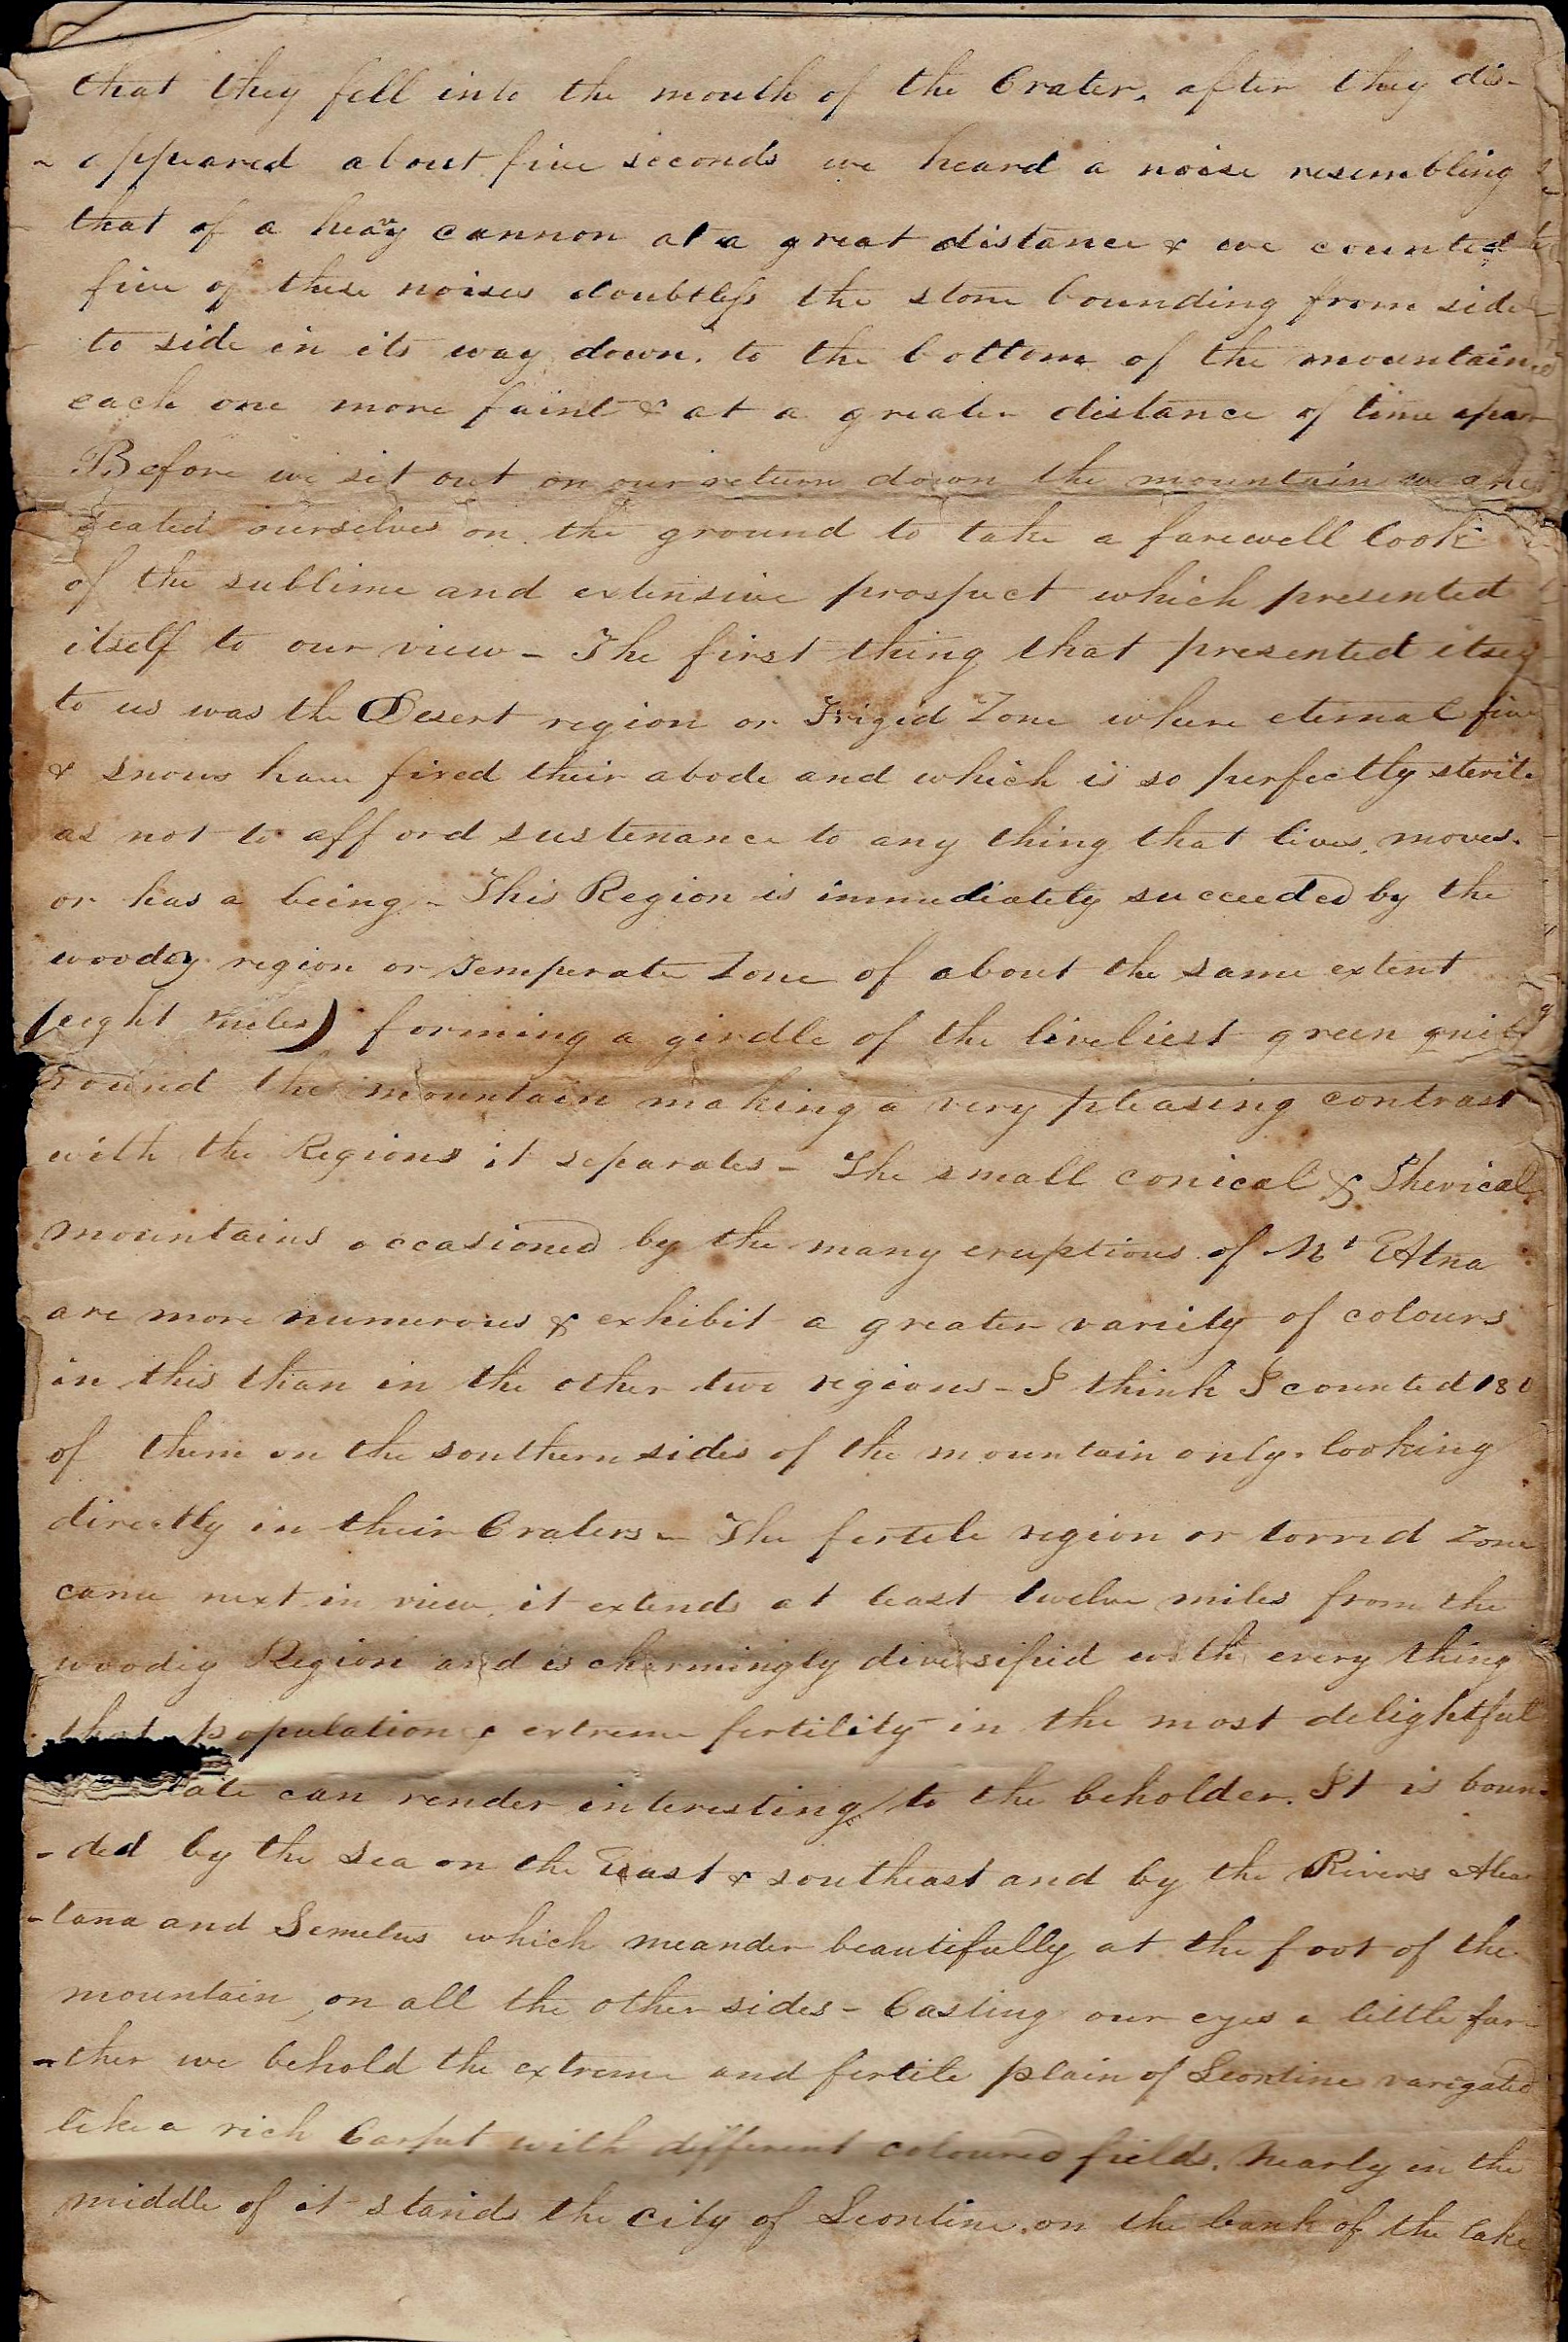 that they fell into the mouth of the Crater, after they dis-
- appeared about five seconds we heard a noise resembling
that of a heavy cannon at a great distance & we counted
five of these noises doubtless the stone bounding from side
to side in its way down. to the bottom of the mountain
each one more faint & at a greater distance of time apar
Before we sit out on our return down the mountain we
seated ourselves on the ground to take a farewell look
of the sublime and extensive prospect which presented
itself to our view - The first thing that presented itself
to us was the Desert region or Frigid Zone where eternal fire
& snows have fixed their abode and which is so perfectly sterile
as not to afford sustenance to any thing that lives, moves.
or has a being - This Region is immediately succeeded by the
woody region or Temperate Zone of about the same extent
(eight miles) forming a girdle of the liveliest green quite
round the mountain making a very pleasing contrast
with the Regions it separates - The small conical &
mountains occasioned by the many eruptions of Mt Etna
are more numerous & exhibit a greater variety of colours
in this than in the other two regions - I think I counted 180
of them on the southern sides of the mountain only. looking
directly in their Craters - The fertile region or torrid Zone
came next in view, it extends at least twelve miles from the
woody Region and is charmingly diversified with every thing
that population & extreme fertility in the most delightful
ate can render interesting to the beholder. It is boun-
- ded by the sea on the East & southeast and by the Rivers
- tana and Semetus which meander beautifully at the foot of the
mountain, on all the other sides - Casting our eyes a little far-
- ther we behold the extreme and fertile plain of Leontine varigated
like a rich Carpet with different coloured fields. Nearly in the
middle of it stands the city of Leontine. on the bank of the lake